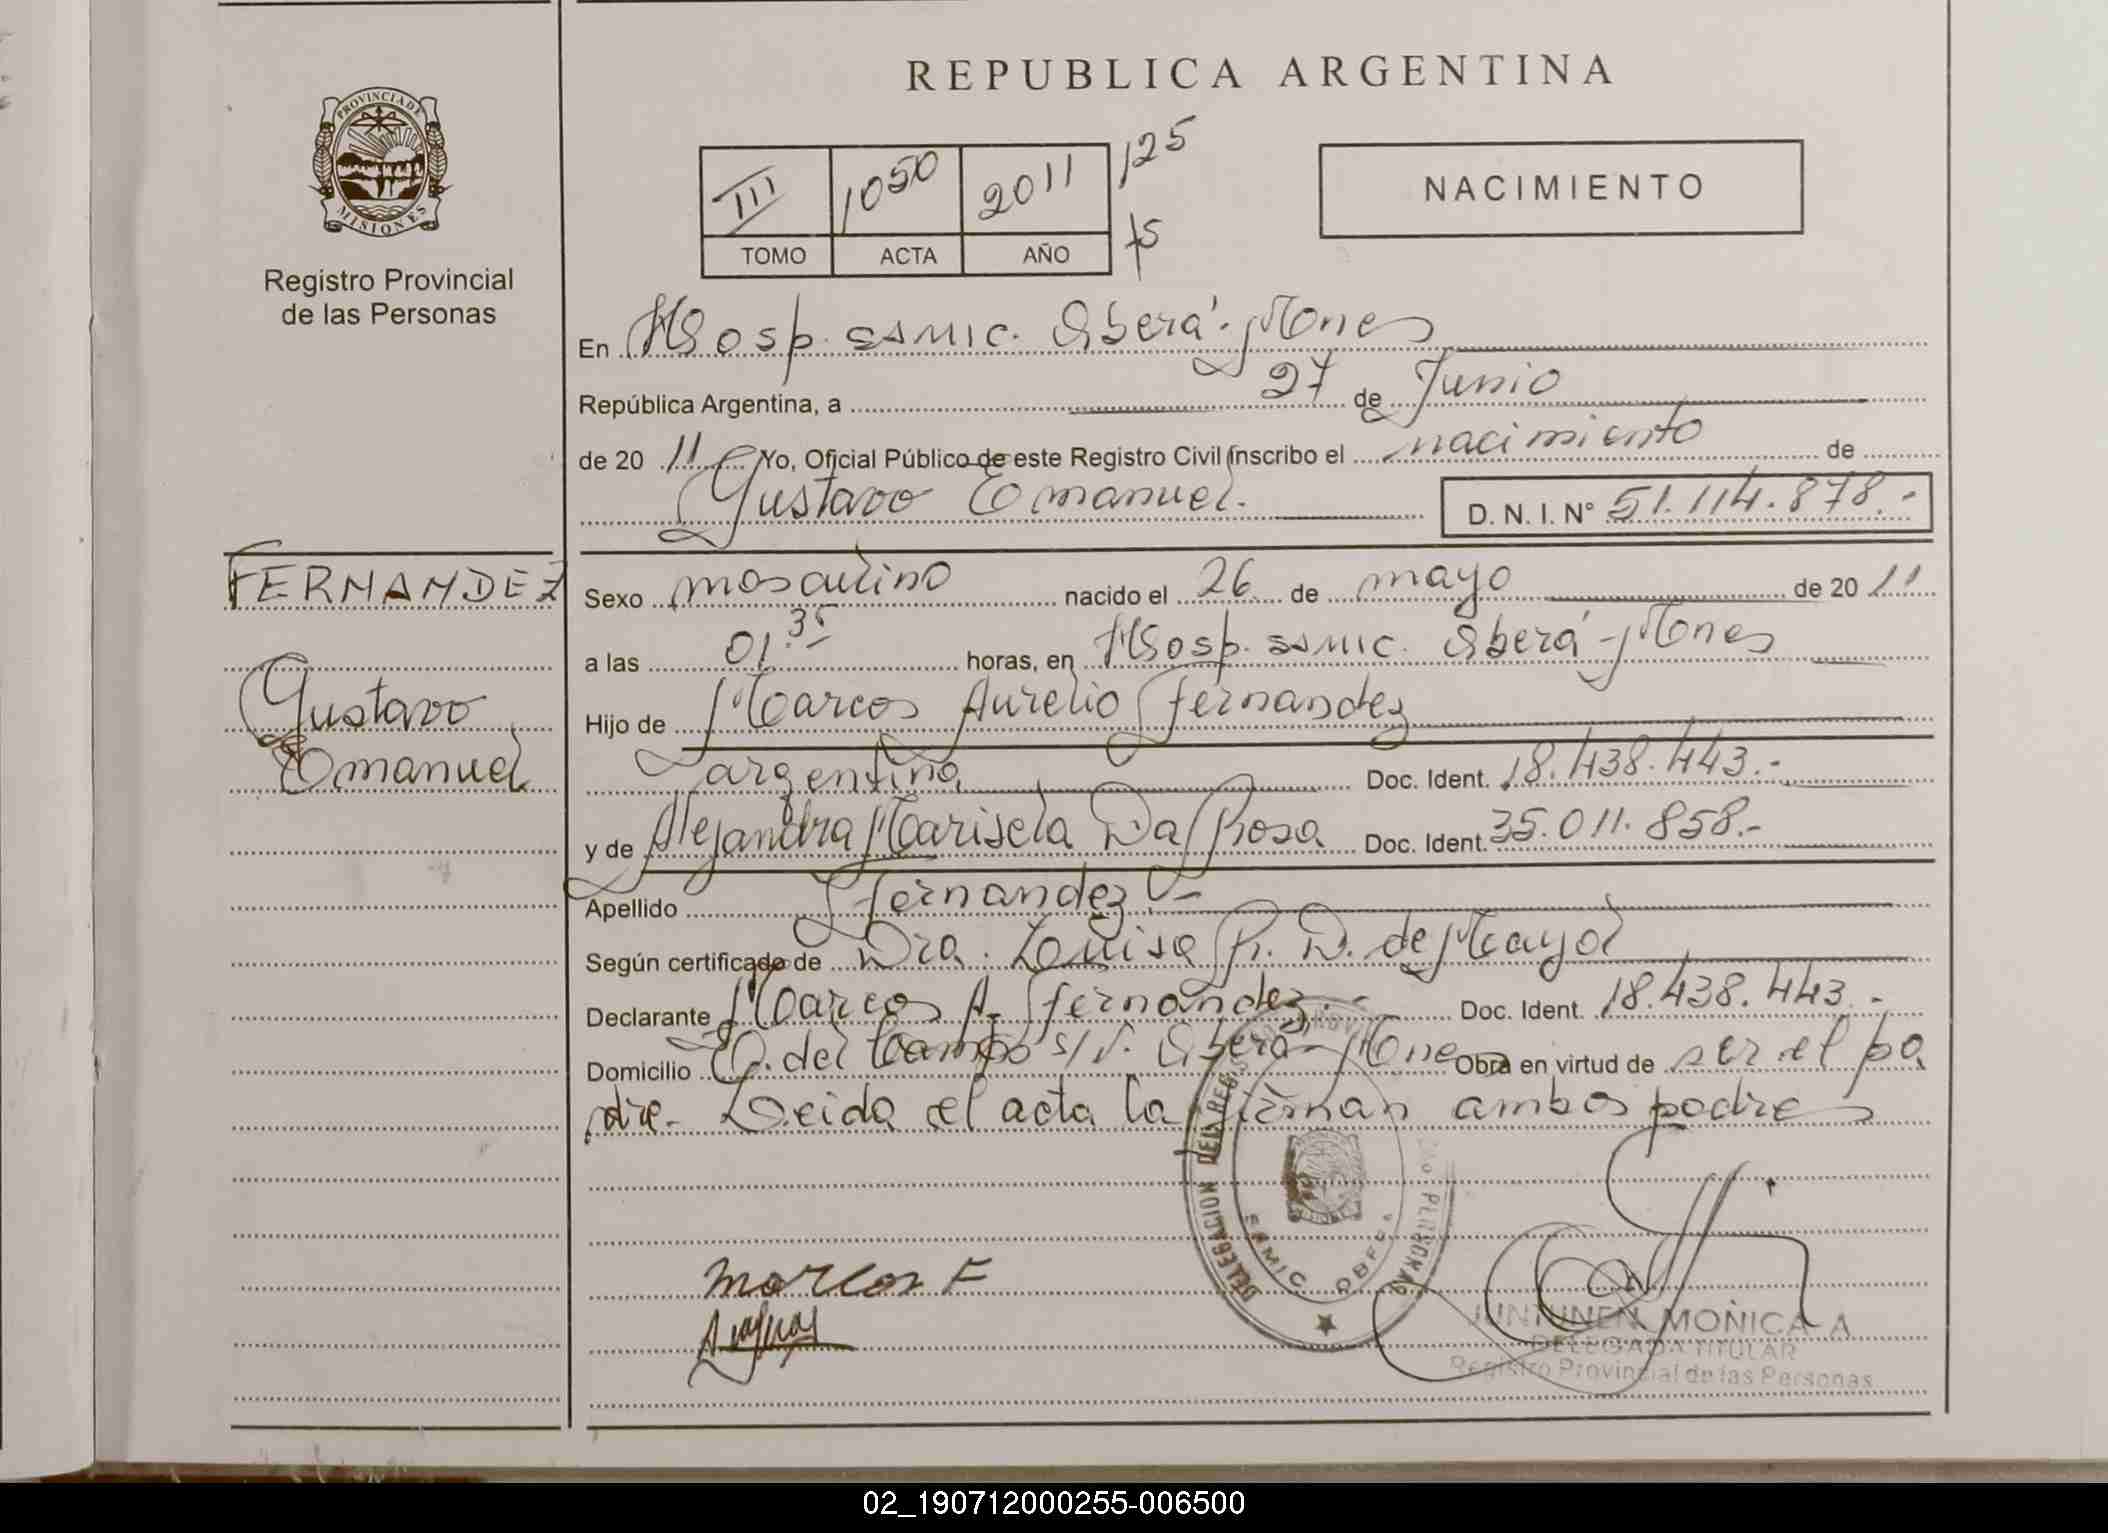 REPUBLICA ARGENTINA
PROVINCIA DE
MISIONES
Registro Provincial
de las Personas
III 1050 2011 125
TOMO ACTA AÑO
NACIMIENTO
En Hosp. SAMIC. Oberá - Mnes
República Argentina, a 27 de Junio
de 20 11 Yo, Oficial Público de este Registro Civil inscribo el nacimiento de
Gustavo Emanuel. D. N. I. N° 51.114.878.-
FERNANDEZ
Gustavo
Emanuel
Sexo masculino nacido el 26 de mayo de 20 11
a las 01.35 horas, en Hosp. SAMIC. Oberá - Mnes
Hijo de Marcos Aurelio Fernandez
argentina Doc. Ident. 18.438.443.-
y de Alejandra Marisela Da Rosa Doc. Ident. 35.011.858.-
Apellido Fernandez.-
Según certificado de Dra. Luisa R. D. de Mayol
Declarante Marcos A. Fernandez.- Doc. Ident. 18.438.443.-
Domicilio B. del Campo s/N. Oberá - Mnes Obra en virtud de ser el pa
dre. Leida el acta la firman ambos padres
DELEGACION DEL REGISTRO PROVINCIAL PERSONAS
SAMIC OBERA
Marcos F
JUNTUNEN MONICA A
DELEGADA TITULAR
Registro Provincial de las Personas
02_190712000255-006500